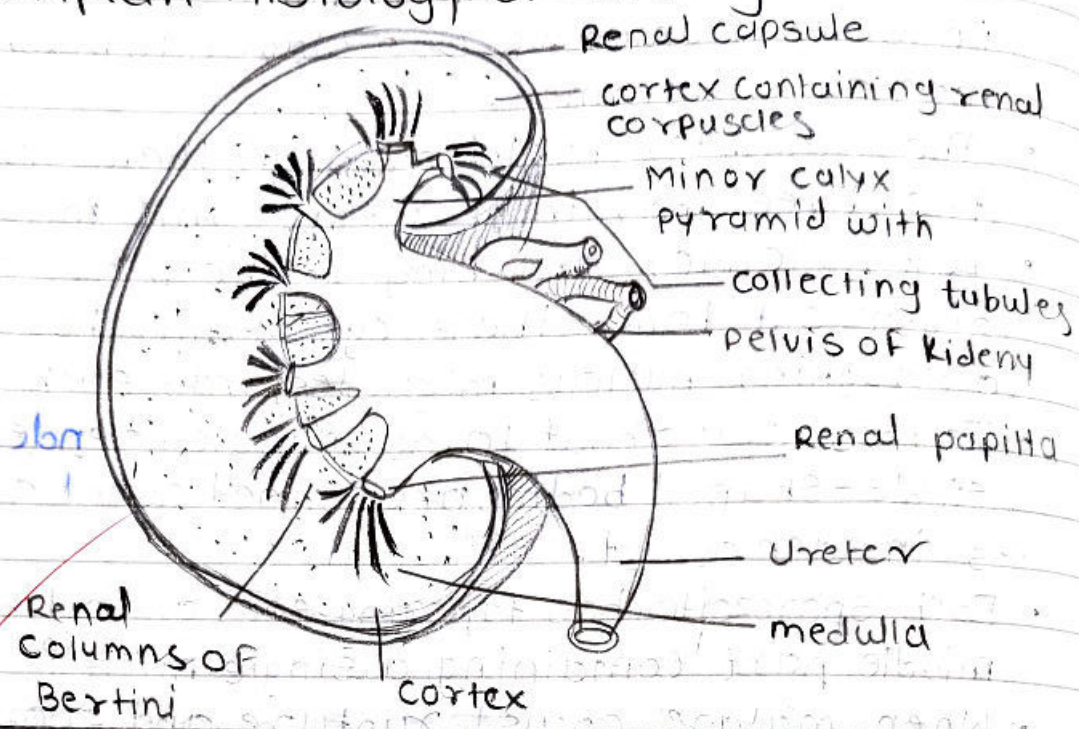 histology of
Renal capsule
cortex containing renal
corpuscles
Minor calyx
pyramid with
collecting tubules
pelvis of Kideny
Renal papilla
Ureter
medulla
Renal
Columns of
Bertini
Cortex